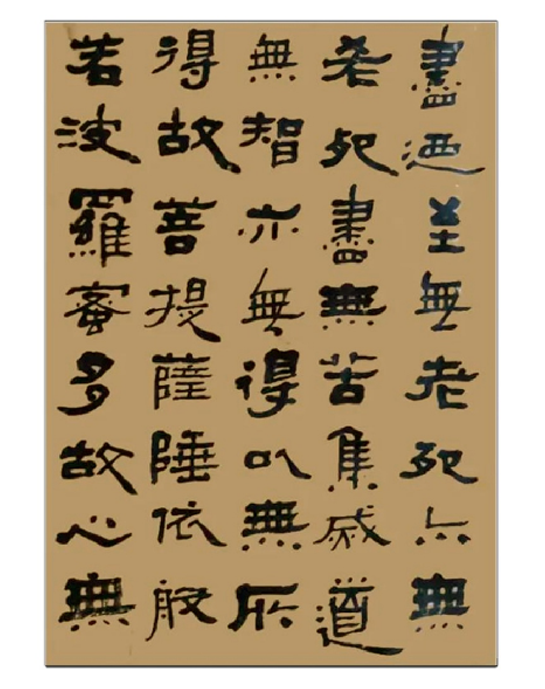 盡迺至無老死亦無
老死盡無苦集烕道
無智亦無得以無所
得故菩提薩陲依般
若波羅蜜多故心無